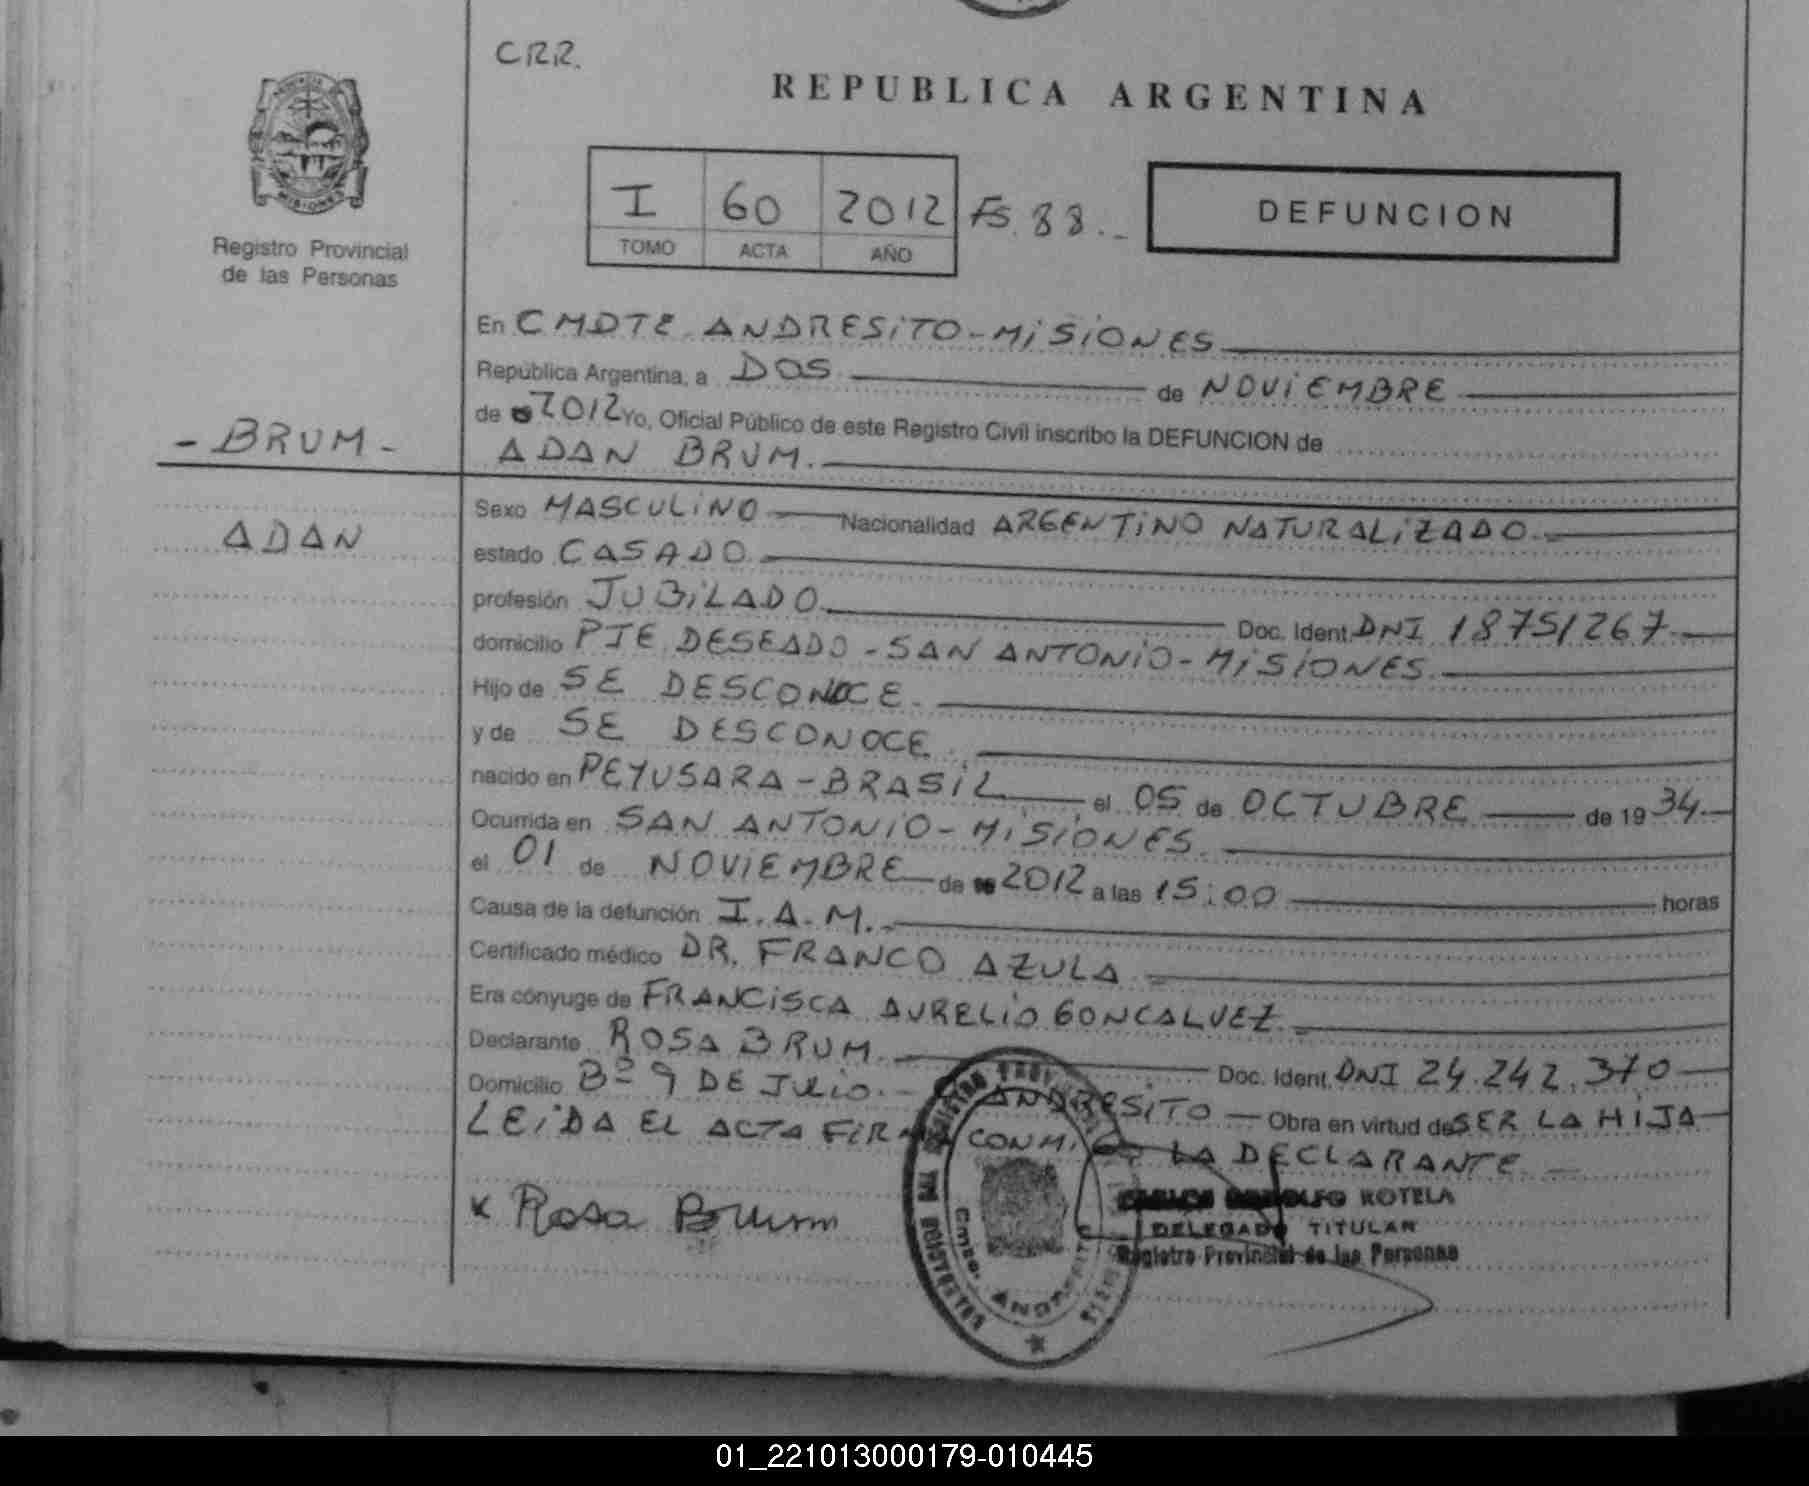 CRR.
REPUBLICA ARGENTINA
MISIONES
Registro Provincial
de las Personas
I 60 2012 Fs. 88.-
TOMO ACTA AÑO
DEFUNCION
En CMDTE ANDRESiTO-MiSiONES
República Argentina, a DOS de NOViEMBRE
de 2012 Yo, Oficial Público de este Registro Civil inscribo la DEFUNCION de
- BRUM -
ADAN BRUM.
ADAN
Sexo MASCULiNO Nacionalidad ARGENTiNO NATURALiZADO.
estado CASADO.
profesión JUBiLADO. Doc. Ident. DNI 18751267.
domicilio PTE DESEADO - SAN ANTONiO - MiSiONES.
Hijo de SE DESCONOCE.
y de SE DESCONOCE.
nacido en PEYUSARA - BRASiL el 05 de OCTUBRE de 19 34.
Ocurrida en SAN ANTONiO - MiSiONES.
el 01 de NOViEMBRE de 2012 a las 15:00 horas
Causa de la defunción I.A.M.
Certificado médico DR. FRANCO AZULA
Era cónyuge de FRANCiSCA AURELiO GONCALVEZ.
Declarante ROSA BRUM. Doc. Ident. DNI 24.242.370
Domicilio Bº 9 DE JULiO. - ANDRESiTO Obra en virtud de SER LA HiJA
LEiDA EL ACTA FiRMA CONMiGO LA DECLARANTE.
x Rosa Brum
RODOLFO ROTELA
DELEGADO TITULAR
Registro Provincial de las Personas
REGISTRO PROVINCIAL DE LAS PERSONAS
Cmte. ANDRESITO
01_221013000179-010445